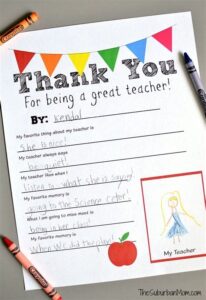 Thank You
For being a great teacher!
By: Kendal
My favorite thing about my teacher is
she is nice!
My teacher always says
be quiet!
My teacher likes when I
listen to what she is saying!
My favorite memory is
going to the Science Center!
What I am going to miss most is
being in her class!
My favorite memory is
When We did the play!
My Teacher
TheSuburbanMom.com